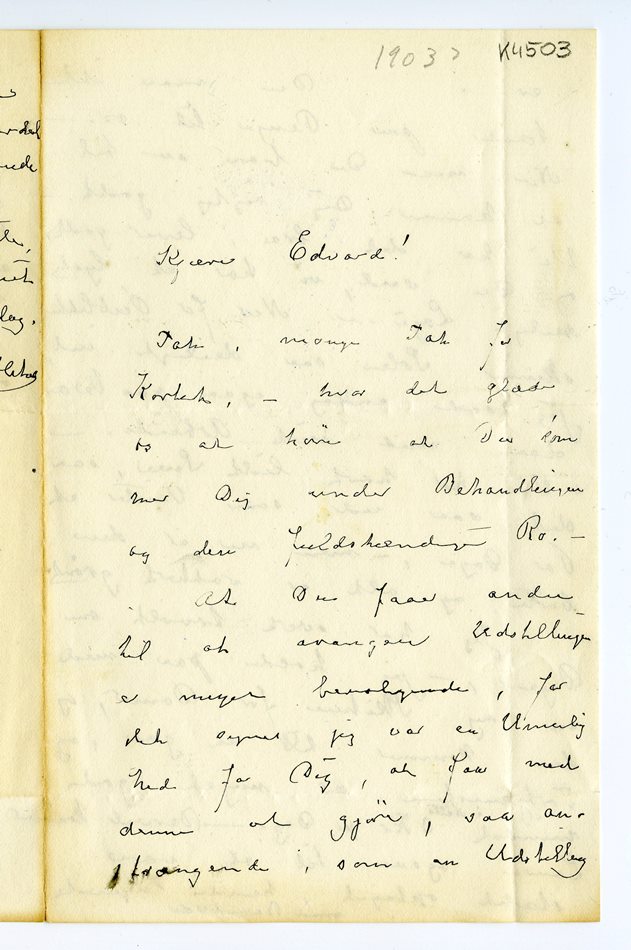 1903? K4503
Kjære Edvard!
Tak, mange Tak for
Kortet, – hvor det glæder
os at høre at Du kom
mer Dig under Behandlingen
og den fuldstændige Ro. –
At Du faar andre
til at arangere Udstillingen
er meget beroligende, for
det synes jeg var en Umulig
hed for Dig, at faa med
denne at gjøre, saa an-
strængende, som en Udstilling